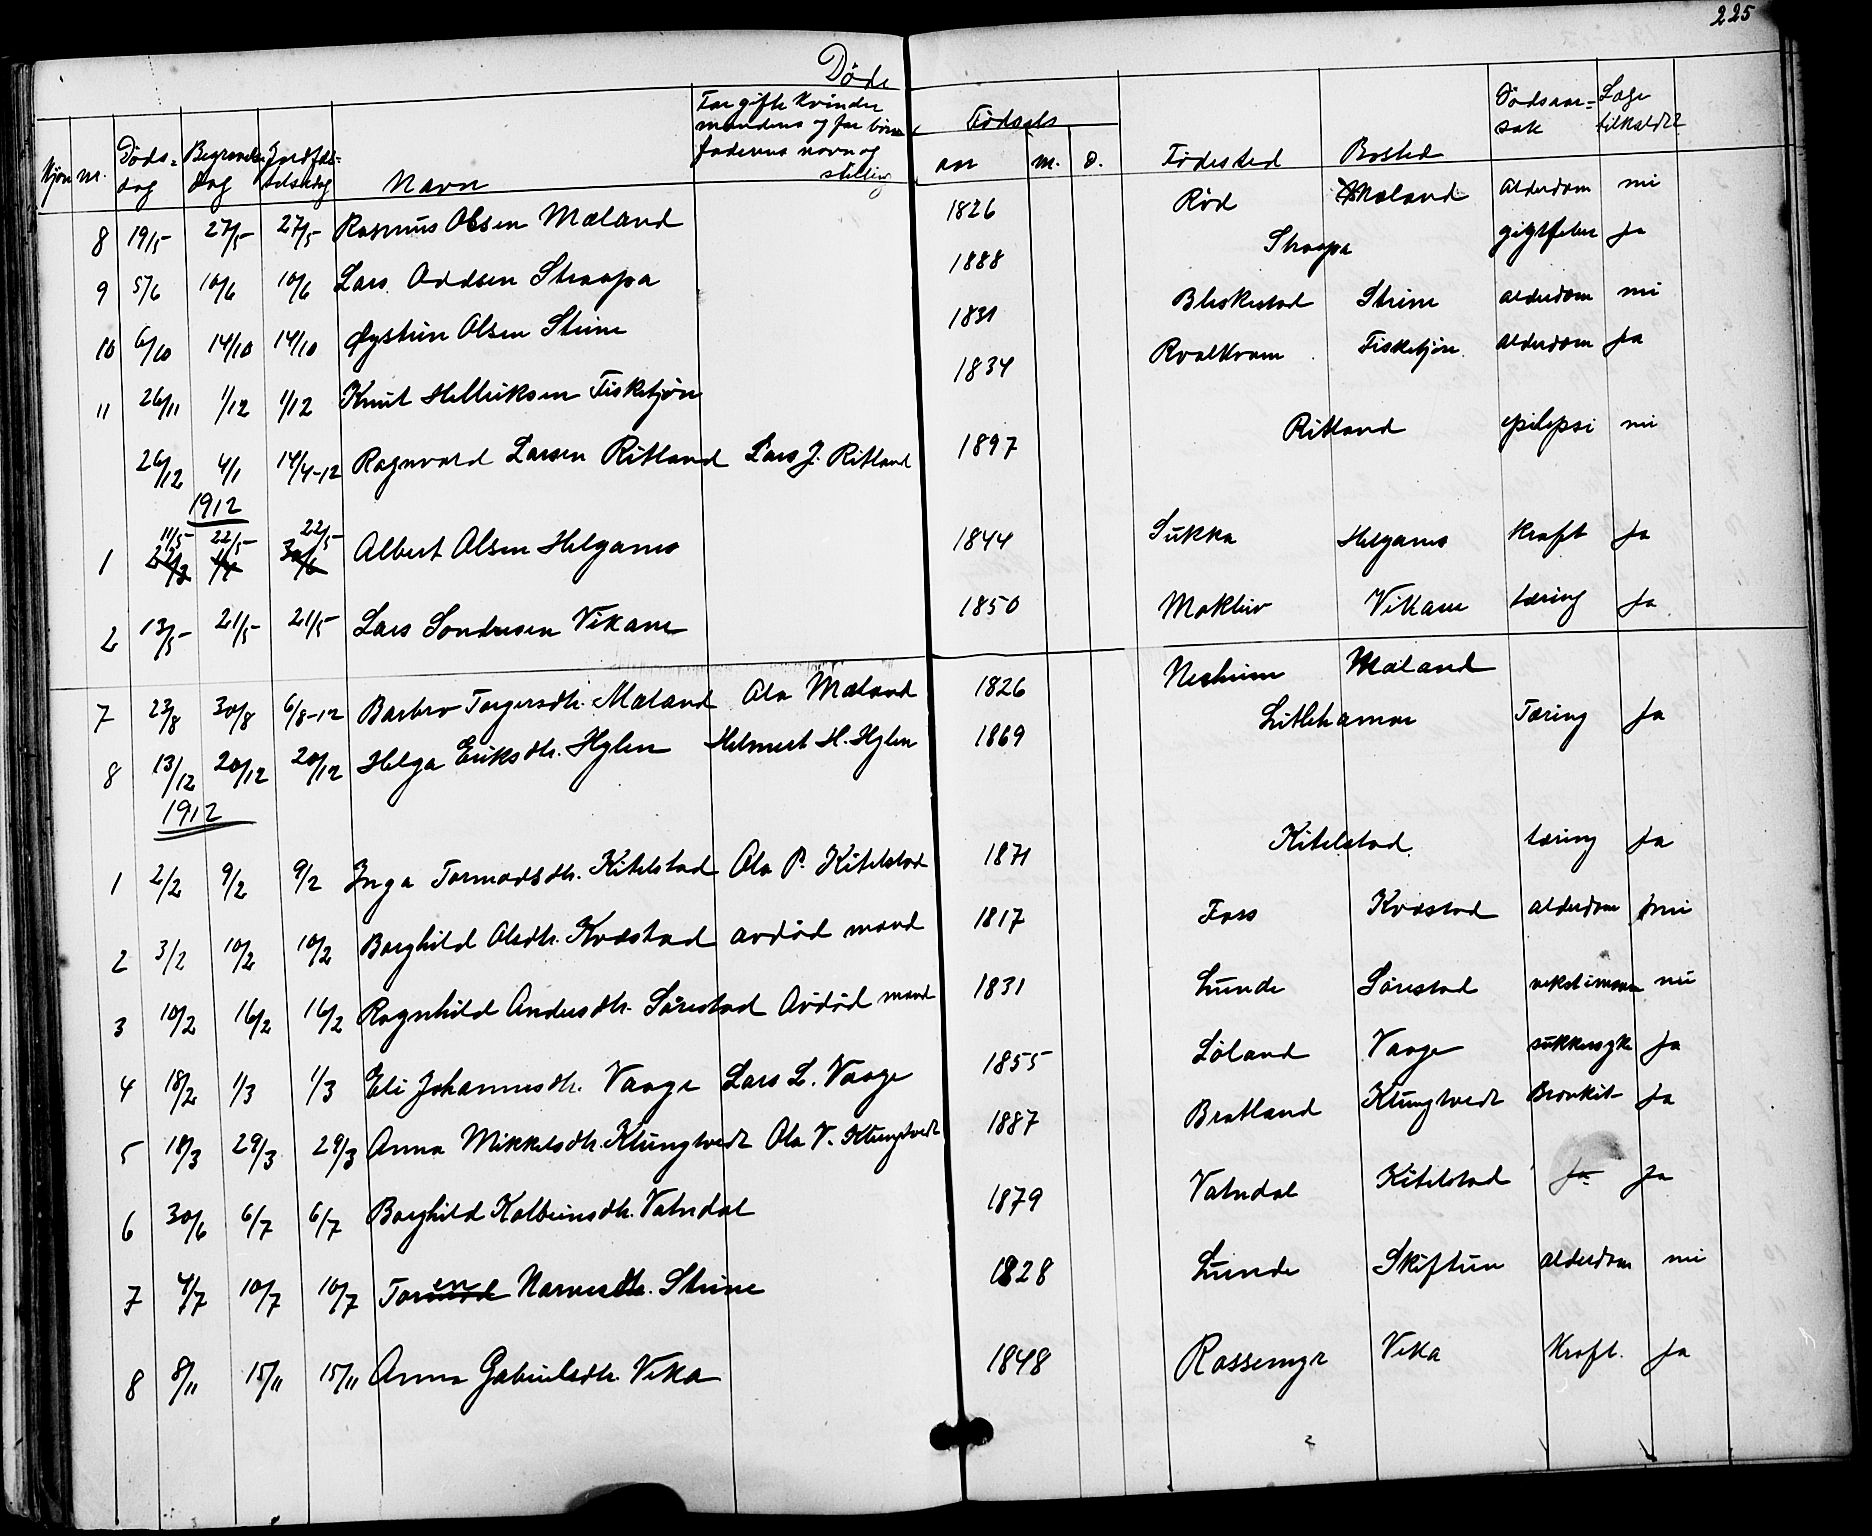 225
Døde
Kjøn nr. Døds- dag Begravelses dag Jordfæstelsesdag Navn For gifte kvinder mandens og for børn faderens navn og stilling Fødsels aar m. d. Fødested Bosted Dødsaarsak Læge tilkaldt
8 19/5 27/5 27/5 Rasmus Olsen Mæland 1826 Rød Mæland alderdom nei
9 5/6 10/6 10/6 Lars Oddsen Straapa 1888 Straapa gigtfeber ja
10 6/10 14/10 14/10 Øystein Olsen Steine 1831 Bleskestad Steine alderdom nei
11 26/11 1/12 1/12 Knut Helleiksen Fisketjøn 1834 Roalkvam Fisketjøn alderdom ja
26/12 4/1 14/4-12 Ragnvald Larsen Ritland Lars J. Ritland 1897 Ritland epilepsi nei
1912
11/5 22/5 22/5
1 Albert Olsen Helganes 1844 Sukka Helganes kræft ja
2 13/5 21/5 21/5 Lars Sondresen Vikane 1850 Mokleiv Vikane tæring ja
7 23/8 30/8 6/8-12 Barbro Torgersdtr. Mæland Ola Mæland 1826 Nesheim Mæland
8 13/12 20/12 20/12 Helga Eriksdtr. Hylen Helmert H. Hylen 1869 Litlehamar Tæring ja
1912
1 2/2 9/2 9/2 Inga Tormodsdtr. Kitelstad Ola P. Kitelstad 1871 Kitelstad tæring ja
2 3/2 10/2 10/2 Borghild Olsdtr. Kvæstad avdød mand 1817 Foss Kvæstad alderdom nei
3 10/2 16/2 16/2 Ragnhild Andersdtr. Sørestad Avdød mand 1831 Lunde Sørestad nei
4 18/2 1/3 1/3 Eli Johannesdtr. Vaage Lars L. Vaage 1855 Løland Vaage sukkersyke ja
5 18/3 29/3 29/3 Anna Mikkelsdtr. Klungtvedt Ola V. Klungtvedt 1887 Bratland Klungtvedt Bronkit ja
6 30/6 6/7 6/7 Borghild Kolbeinsdtr. Vatndal 1879 Vatndal Kitelstad ja ja
7 4/7 10/7 10/7 Toren Narvesdtr. Steine 1828 Lunde Skiftun alderdom nei
8 8/11 15/11 15/11 Anna Gabrielsdtr. Vika 1848 Rossemyr Vika Kræft. ja